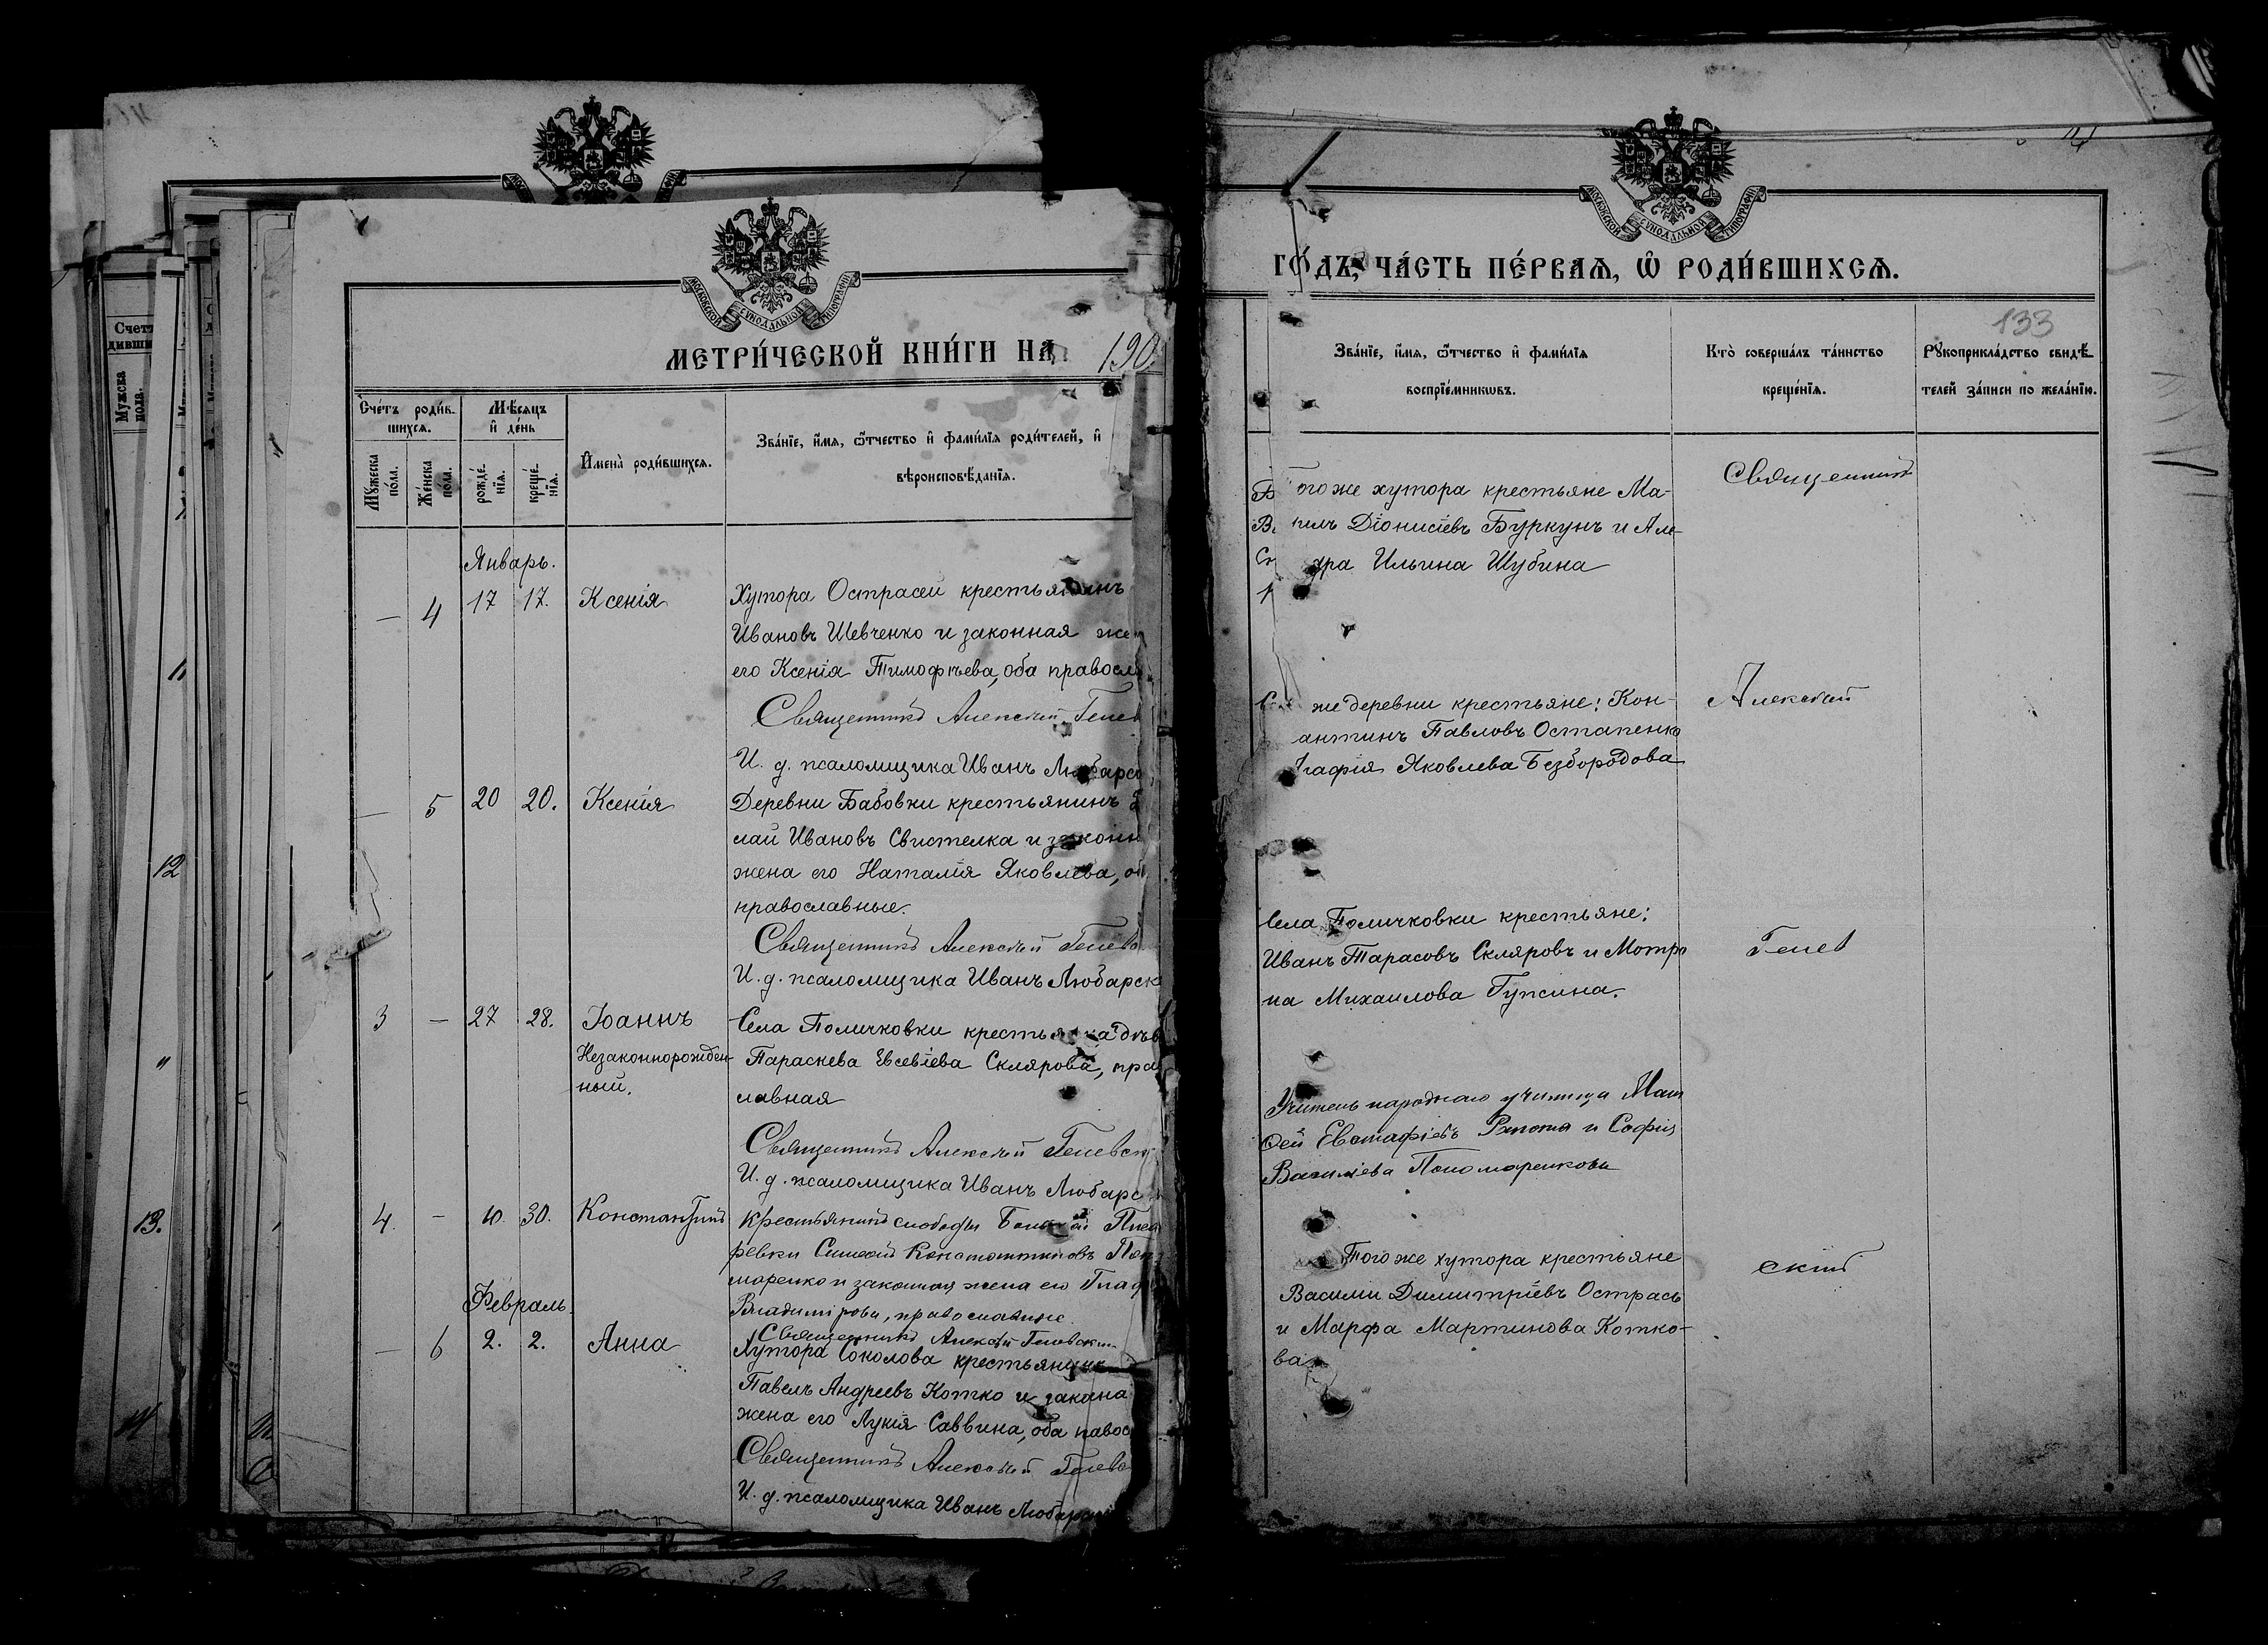 МОСКОВСКОЙ СѴНОДАЛЬНОЙ ТИПОГРАФІИ
МЕТРИ́ЧЕСКОЙ КНИ́ГИ НА 190
Сче́тъ роди́в-
шихсѧ.
Мѣ́сѧцъ
и҆ де́нь
Мꙋ́жеска
по́ла.
Же́нска
по́ла.
рожде́-
нїѧ.
креще́-
нїѧ.
И҆мена̀ роди́вшихсѧ.
Зва́нїе, и҆́мѧ, ѻ҆́тчество и҆ фами́лїѧ роди́телей, и҆
вѣроисповѣ́данїѧ.
Январь.
— 4 17 17. Ксенія
Хутора Острасеи крестьянинъ
Ивановъ Шевченко и законная жен
его Ксенія Тимофѣева, оба правосл
Священникъ Алексѣй
И. д. псаломщика Иванъ Любарс
— 5 20 20. Ксенія
Деревни Бабовки крестьянинъ
лай Ивановъ Свистелка и законн
жена его Наталія Яковлева, об
православные.
Священникъ Алексѣй
И. д. псаломщика Иванъ Любарск
3 — 27 28. Іоаннъ
Незаконнорожден-
ный.
Села Поличковки крестьянка дѣв
Параскева Евсевіева Склярова, пра
лавная
Священникъ Алексѣй
И. д. псаломщика Иванъ Любарс
4. — 30. Константинъ
Крестьянинъ слободы Писа
ревки Константиновъ Поно
маренко и законная жена его Глаф
Владимірова, православные.
Священникъ Алексѣй
Февраль.
— 6 2. 2. Анна
Хутора Соколова крестьянинъ
Павелъ Андреевъ Котко и закана
жена его Лукія Саввина, оба павос
Священникъ Алексѣй
И. д. псаломщика Иванъ Любарскі
МОСКОВСКОЙ СѴНОДАЛЬНОЙ ТИПОГРАФІИ
ГО́ДЪ, ЧА́СТЬ ПЕ́РВАѦ, Ѡ҆ РОДИ́ВШИХСѦ.
133
Зва́нїе, и҆́мѧ, ѻ҆́тчество и҆ фами́лїѧ
воспрїе́мникѡвъ.
Кто̀ соверша́лъ та́инство
креще́нїѧ.
Рꙋкоприкла́дство свидѣ́-
телей за́писи по жела́нїю.
ого же хутора крестьяне Ма-
Діонисіевъ Буркунъ и Але-
дра Ильина Шубина
Священникъ
же деревни крестьяне: Кон-
антинъ Павловъ Остапенко
Яковлева Безбородова
Алексѣй
Села Поличковки крестьяне:
Иванъ Тарасовъ Скляровъ и Мотро
на Михаилова Гужина.
Учитель народнаго училища Мат
фей Евстафіевъ и Софія
Василіева Пономаренкова
Того же хутора крестьяне
Василій ДимитріевъОстрась
и Марфа Мартинова Котко-
ва
скій
Счетъ
дивши
Мужска
пола.
12
13.